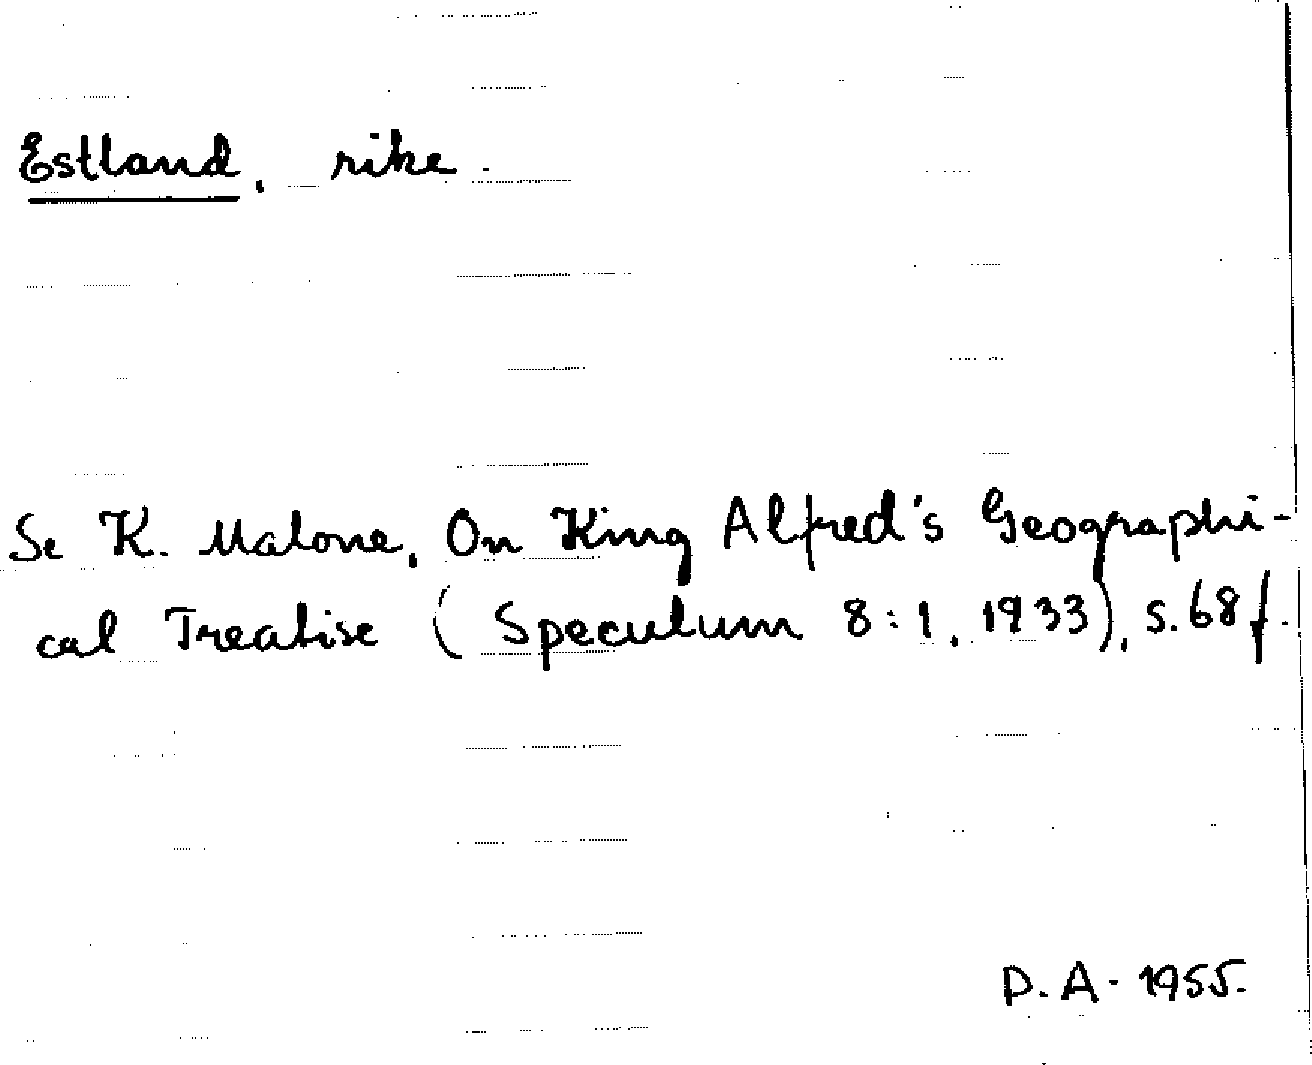 Estland, rike.
Se K. Malone, On King Alfred's Geographi-
cal Treatise (Speculum 8:1, 1933), s. 68 f.
D. A. 1955.